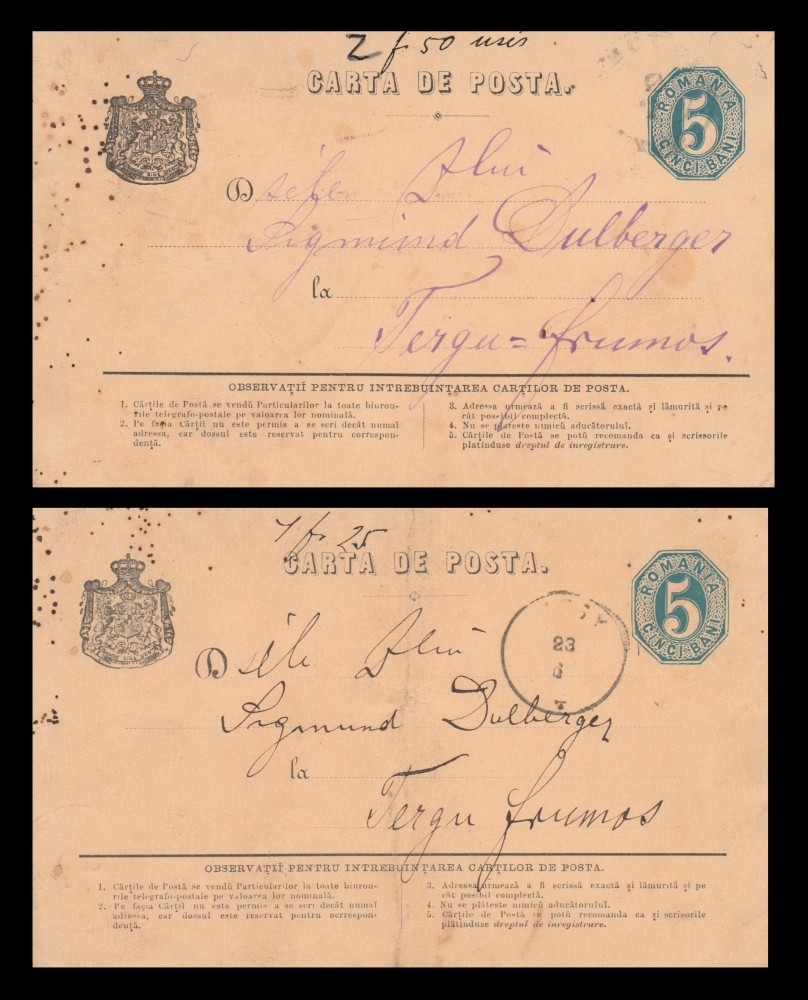 2 f 50 uses
CARTA DE POSTA.
ROMANIA
5
CINCI BANI
D sele Dlui
Sigmund Dulberger
la
Tergu=frumos.
OBSERVAȚII PENTRU INTREBUINȚAREA CARȚILOR DE POSTA.
1. Cărțile de Postă se vendŭ Particularilor la toate biurou-
rile telegrafo-postale pe valoarea lor nominală.
2. Pe fața Cărții nu este permis a se scri decăt numai
adresa, ear dossul este reservat pentru correspon-
dență.
3. Adressa urmează a fi scrissă exactă și lămurită și pe
căt possibil complectă.
4. Nu se plătește nimicŭ aducătorului.
5. Cărțile de Postă se potŭ recomanda ca și scrissorile
platinduse dreptul de inregistrare.
7 f 25
CARTA DE POSTA.
ROMANIA
5
CINCI BANI
23
6
D sele Dlui
Sigmund Dulberger
la
Tergu frumos
OBSERVAȚII PENTRU INTREBUINȚAREA CARȚILOR DE POSTA.
1. Cărțile de Postă se vendŭ Particularilor la toate biurou-
rile telegrafo-postale pe valoarea lor nominală.
2. Pe fața Cărții nu este permis a se scri decăt numai
adressa, ear dossul este reservat pentru ocrrespon-
dență.
3. Adressa urmează a fi scrissă exactă și lămurită și pe
căt posibil complectă.
4. Nu se plătește nimicŭ aducătorului.
5. Cărțile de Postă se potŭ recomanda ca și scrisorile
plătinduse dreptul de inregistrare.